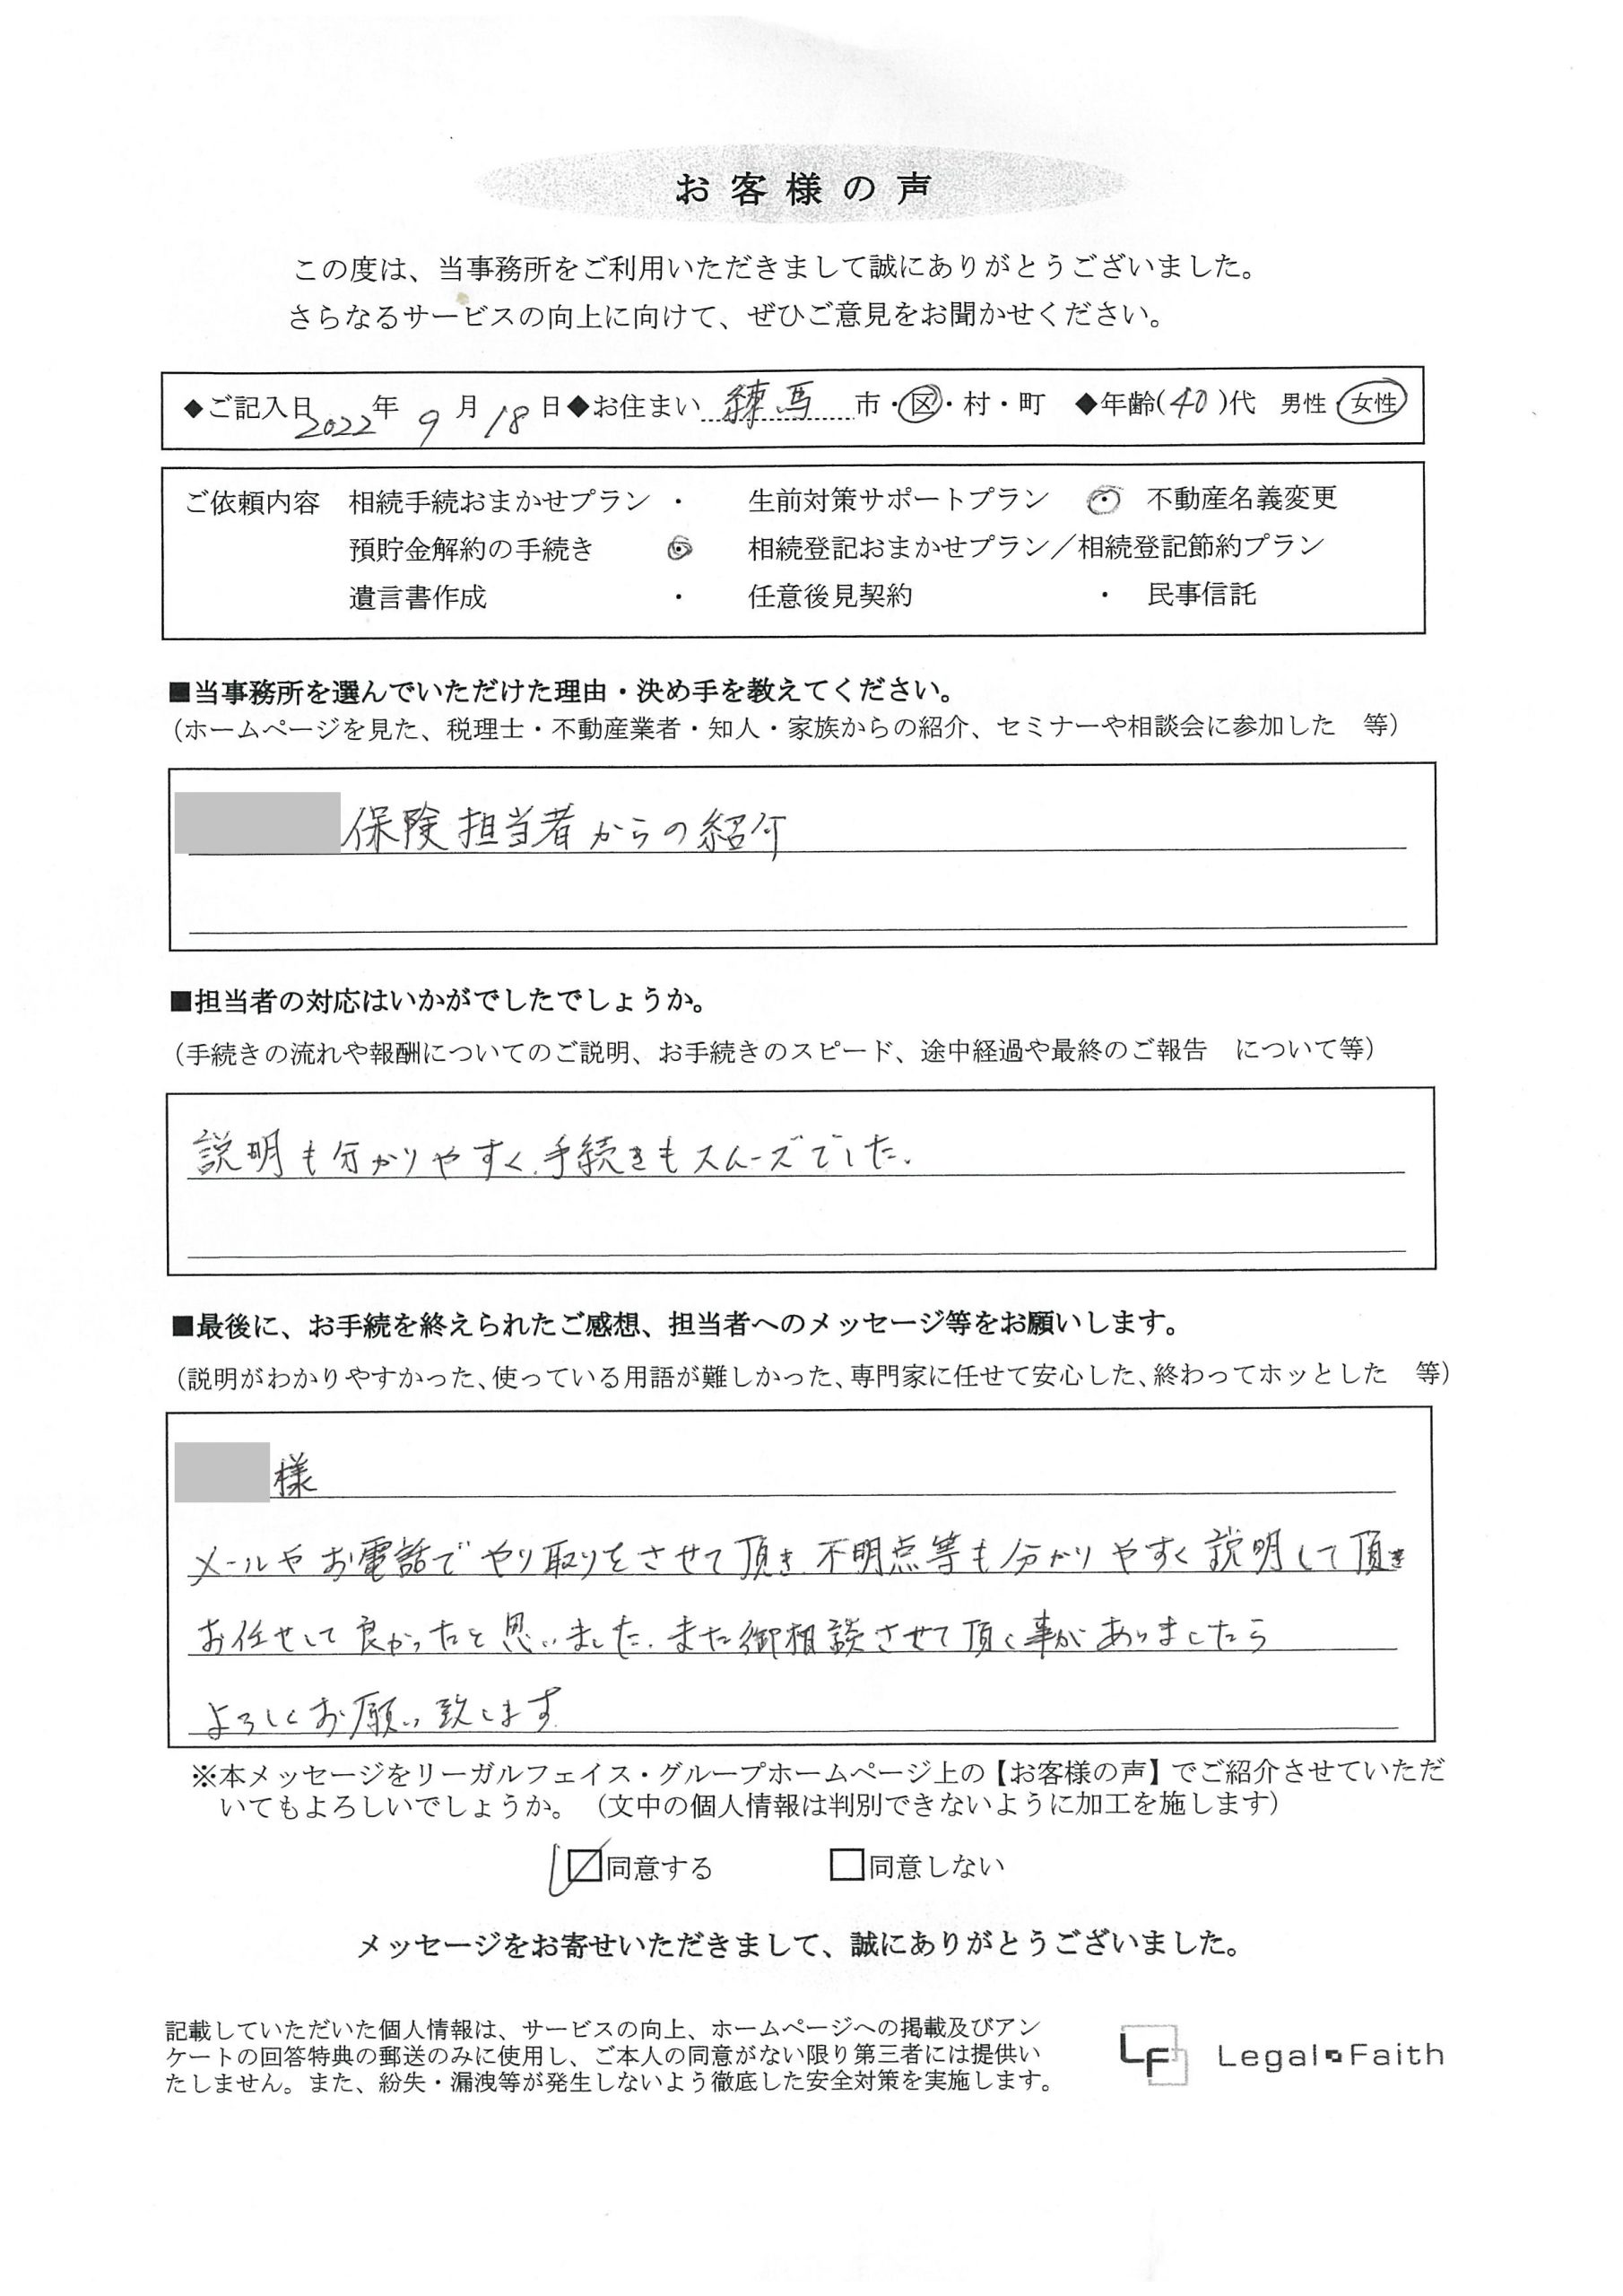 お客様の声
この度は、当事務所をご利用いただきまして誠にありがとうございました。
さらなるサービスの向上に向けて、ぜひご意見をお聞かせください。
◆ご記入日 2022年 9月 18日 ◆お住まい 練馬 市・区・村・町 ◆年齢(40)代 男性・女性
ご依頼内容 相続手続おまかせプラン ・ 生前対策サポートプラン ・ 不動産名義変更
預貯金解約の手続き ・ 相続登記おまかせプラン／相続登記節約プラン
遺言書作成 ・ 任意後見契約 ・ 民事信託
■当事務所を選んでいただけた理由・決め手を教えてください。
（ホームページを見た、税理士・不動産業者・知人・家族からの紹介、セミナーや相談会に参加した　等）
保険担当者からの紹介
■担当者の対応はいかがでしたでしょうか。
（手続きの流れや報酬についてのご説明、お手続きのスピード、途中経過や最終のご報告　について等）
説明も分かりやすく、手続きもスムーズでした。
■最後に、お手続を終えられたご感想、担当者へのメッセージ等をお願いします。
（説明がわかりやすかった、使っている用語が難しかった、専門家に任せて安心した、終わってホッとした　等）
様
メールやお電話でやり取りをさせて頂き、不明点等も分かりやすく説明して頂き
お任せして良かったと思いました。また御相談させて頂く事がありましたら
よろしくお願い致します
※本メッセージをリーガルフェイス・グループホームページ上の【お客様の声】でご紹介させていただ
いてもよろしいでしょうか。（文中の個人情報は判別できないように加工を施します）
☑同意する　□同意しない
メッセージをお寄せいただきまして、誠にありがとうございました。
記載していただいた個人情報は、サービスの向上、ホームページへの掲載及びアン
ケートの回答特典の郵送のみに使用し、ご本人の同意がない限り第三者には提供い
たしません。また、紛失・漏洩等が発生しないよう徹底した安全対策を実施します。
LF Legal Faith